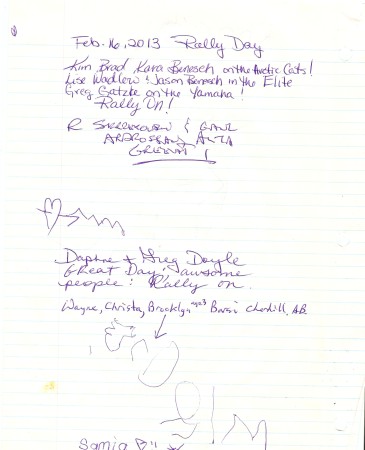 Feb. 16, 2013 Rally Day
Kim Brad Kara Benesch on the Arctic Cats!
Lise Wadlow & Jason Benesch in the Elite
Greg Gatzke on the Yamaha!
Rally On!
R &
Daphne + Greg Doyle
Great Day, awsome
people! Rally on.
Wayne, Christa, Brooklyn age3 Cherhill, AB.
Samia